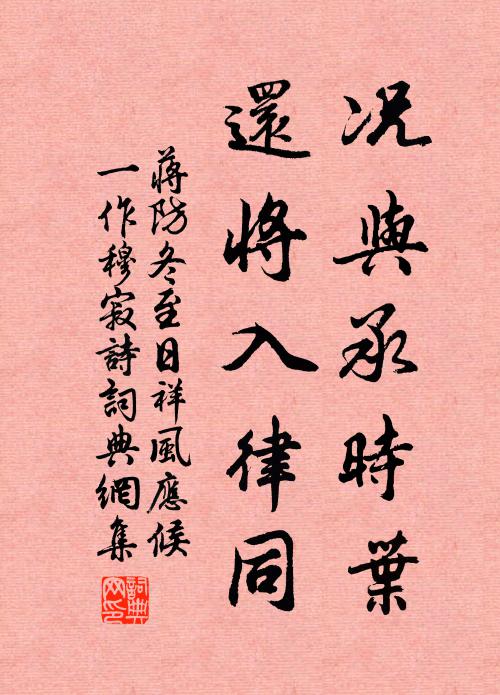 况與承時葉
還將入律同
蔣防冬至日祥風應候
一作穆寂詩詞典網集
詞典
网印